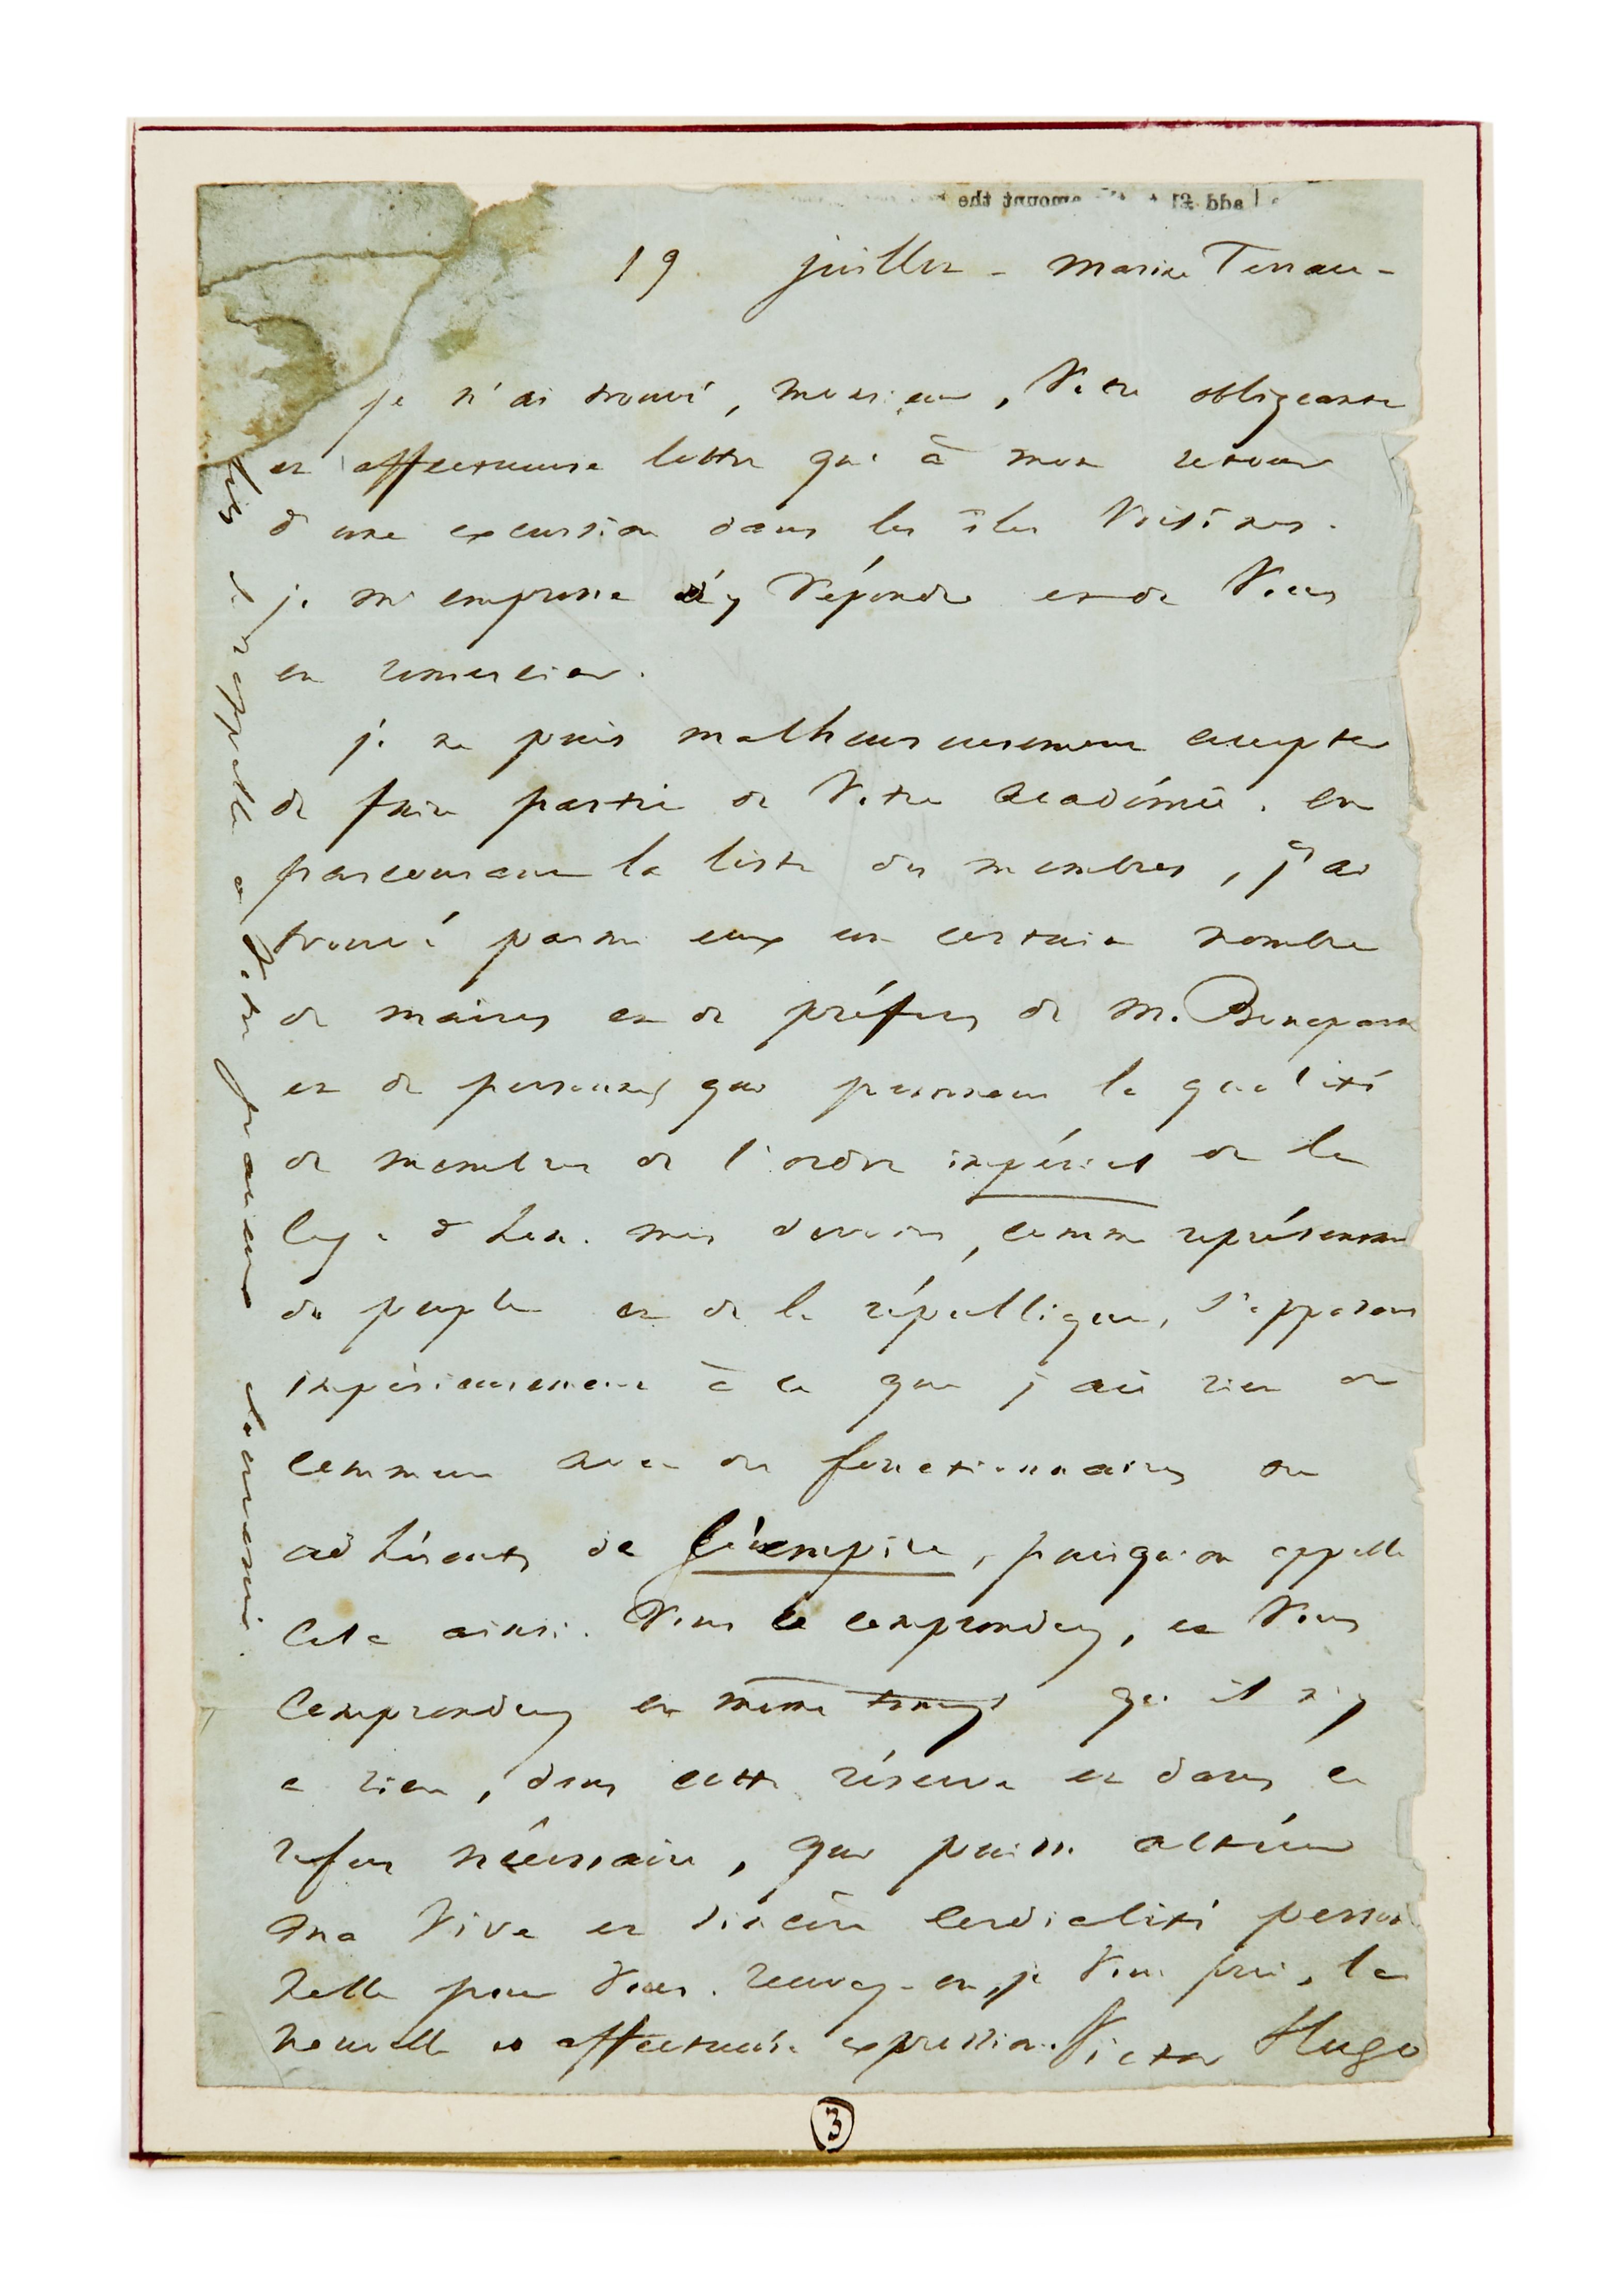 add £1 amount the
19 juillet - Marine Terrace -
je n'ai trouvé, monsieur, votre obligeante
et affectueuse lettre qu'à mon retour
d'une excursion dans les îles voisines.
je m'empresse d'y répondre et de vous
en remercier.
je ne puis malheureusement accepter
de faire partie de votre académie. en
parcourant la liste des membres, j'ai
trouvé parmi eux un certain nombre
de maires et de préfets de M. Bonaparte
et de personnes qui prennent la qualité
de membres de l'ordre impérial de la
lég. d'hon. mes devoirs, comme représentant
du peuple et de la république, s'opposent
impérieusement à ce que j'aie rien de
commun avec des fonctionnaires ou
adhérents de l'empire, puisqu'on appelle
cela ainsi. Vous le comprendrez, et vous
comprendrez en même temps qu'il n'y
a rien, dans cette réserve et dans ce
refus nécessaire, qui puisse altérer
ma vive et sincère cordialité person
nelle pour vous. recevez-en, je vous prie, la
nouvelle et affectueuse expression. Victor Hugo
se rappelle à votre précieux souvenir.
3